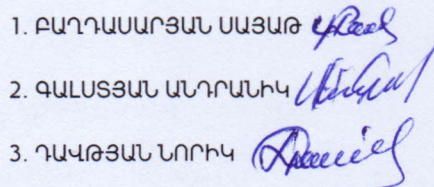 1. ԲԱՂԴԱՍԱՐՅԱՆ ՍԱՅԱԹ
2. ԳԱԼՍՏՅԱՆ ԱՆԴՐԱՆԻԿ
3. ԴԱՎԹՅԱՆ ՆՈՐԻԿ